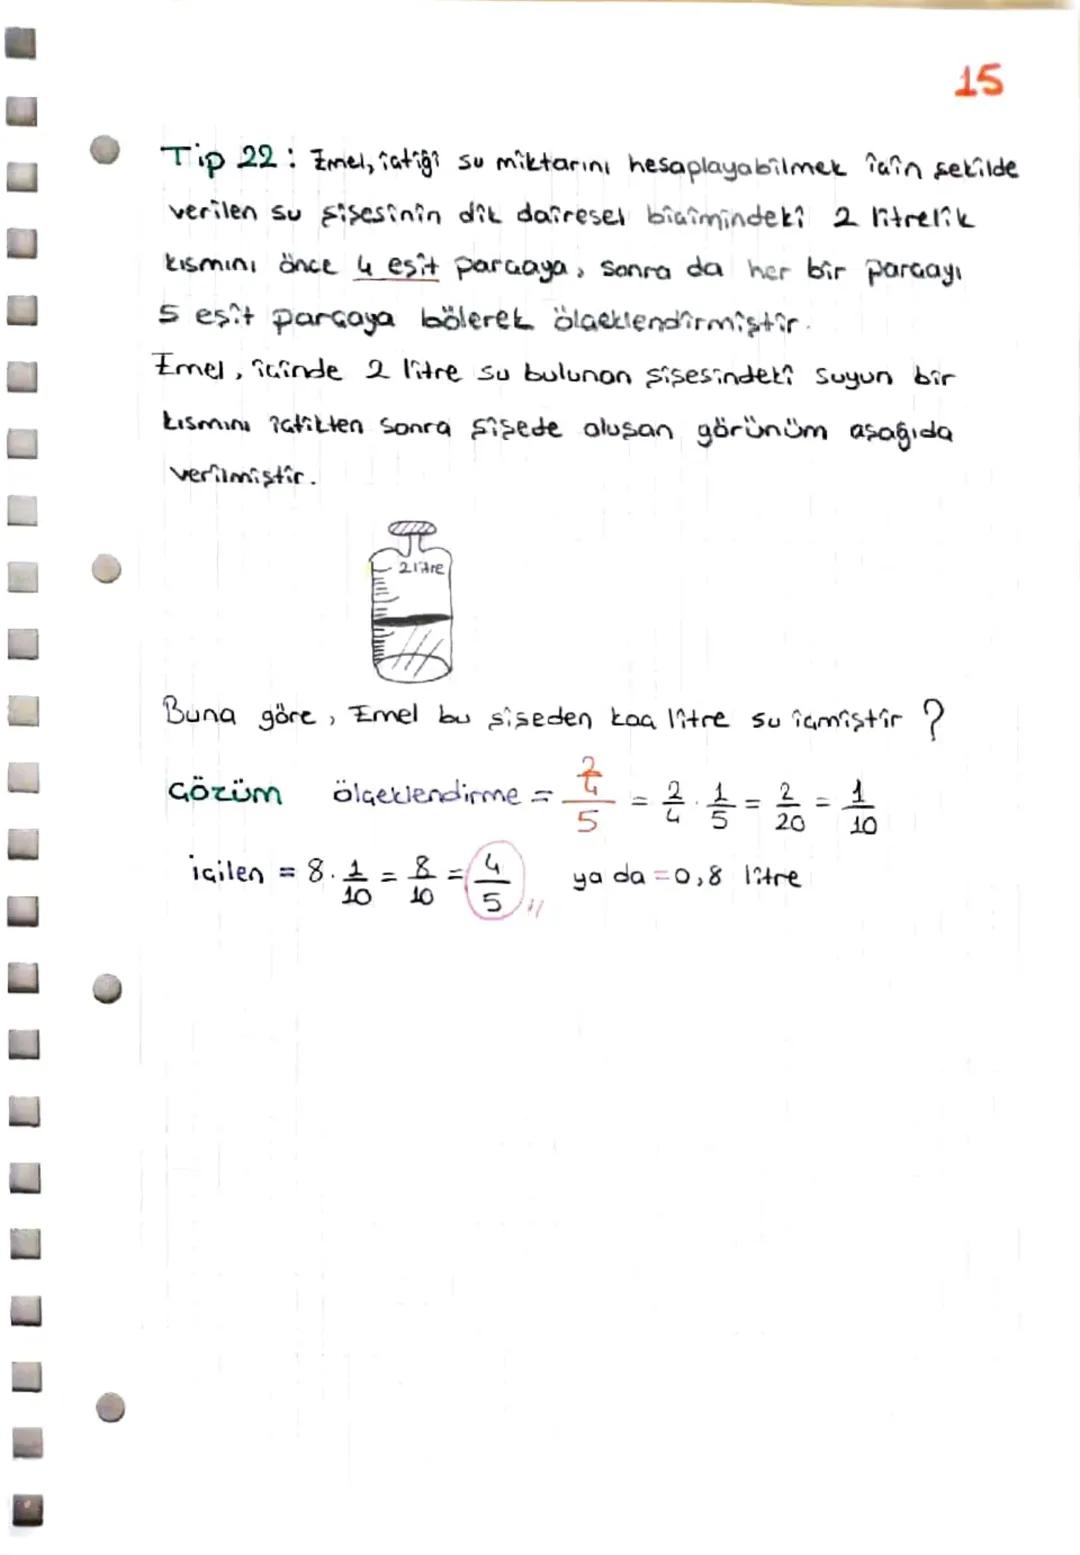 15
Tip 22 : Emel, içtiği su miktarını hesaplayabilmek için şekilde
verilen su şişesinin dik dairesel biçimindeki 2 litrelik
kısmını önce 4 eşit parçaya, sonra da her bir parçayı
5 eşit parçaya bölerek ölçeklendirmiştir.
Emel, içinde 2 litre su bulunan şişesindeki suyun bir
kısmını içtikten sonra şişede oluşan görünüm aşağıda
verilmiştir.
2 litre
Buna göre, Emel bu şişeden kaç litre su içmiştir ?
Çözüm ölçeklendirme = 2/4/5 = 2/4 . 1/5 = 2/20 = 1/10
içilen = 8 . 1/10 = 8/10 = 4/5 // ya da = 0,8 litre